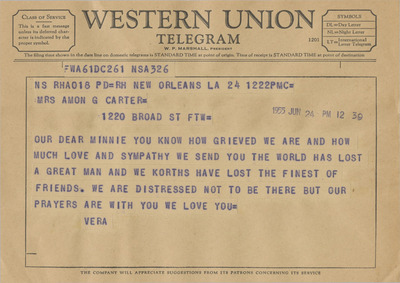 CLASS OF SERVICE
This is a fast message
unless its deferred char-
acter is indicated by the
proper symbol.
WESTERN UNION
TELEGRAM
W. P. MARSHALL, PRESIDENT
1201
SYMBOLS
DL=Day Letter
NL=Night Letter
LT=International Letter Telegram
The filing time shown in the date line on domestic telegrams is STANDARD TIME at point of origin. Time of receipt is STANDARD TIME at point of destination
FWA61DC261 NSA326
NS RHA018 PD=RH NEW ORLEANS LA 24 1222PMC=
MRS AMON G CARTER=
1955 JUN 24 PM 12 39
1220 BROAD ST FTW=
OUR DEAR MINNIE YOU KNOW HOW GRIEVED WE ARE AND HOW
MUCH LOVE AND SYMPATHY WE SEND YOU THE WORLD HAS LOST
A GREAT MAN AND WE KORTHS HAVE LOST THE FINEST OF
FRIENDS. WE ARE DISTRESSED NOT TO BE THERE BUT OUR
PRAYERS ARE WITH YOU WE LOVE YOU=
VERA
THE COMPANY WILL APPRECIATE SUGGESTIONS FROM ITS PATRONS CONCERNING ITS SERVICE